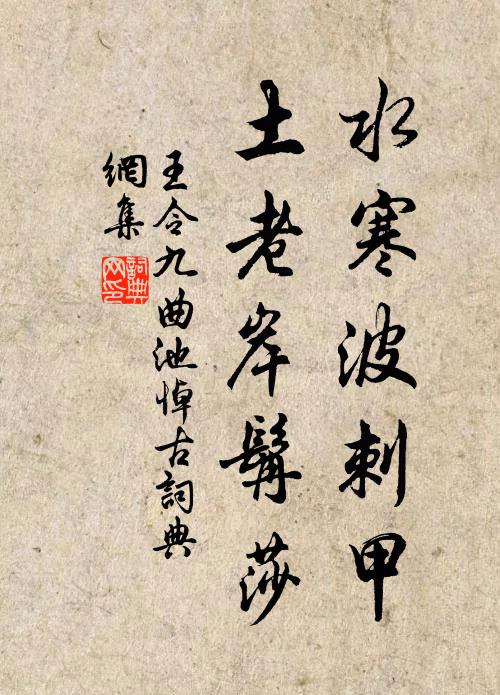 水寒波刺甲
土老岸髯莎
王令九曲池悼古詞典
網集
詞典網印